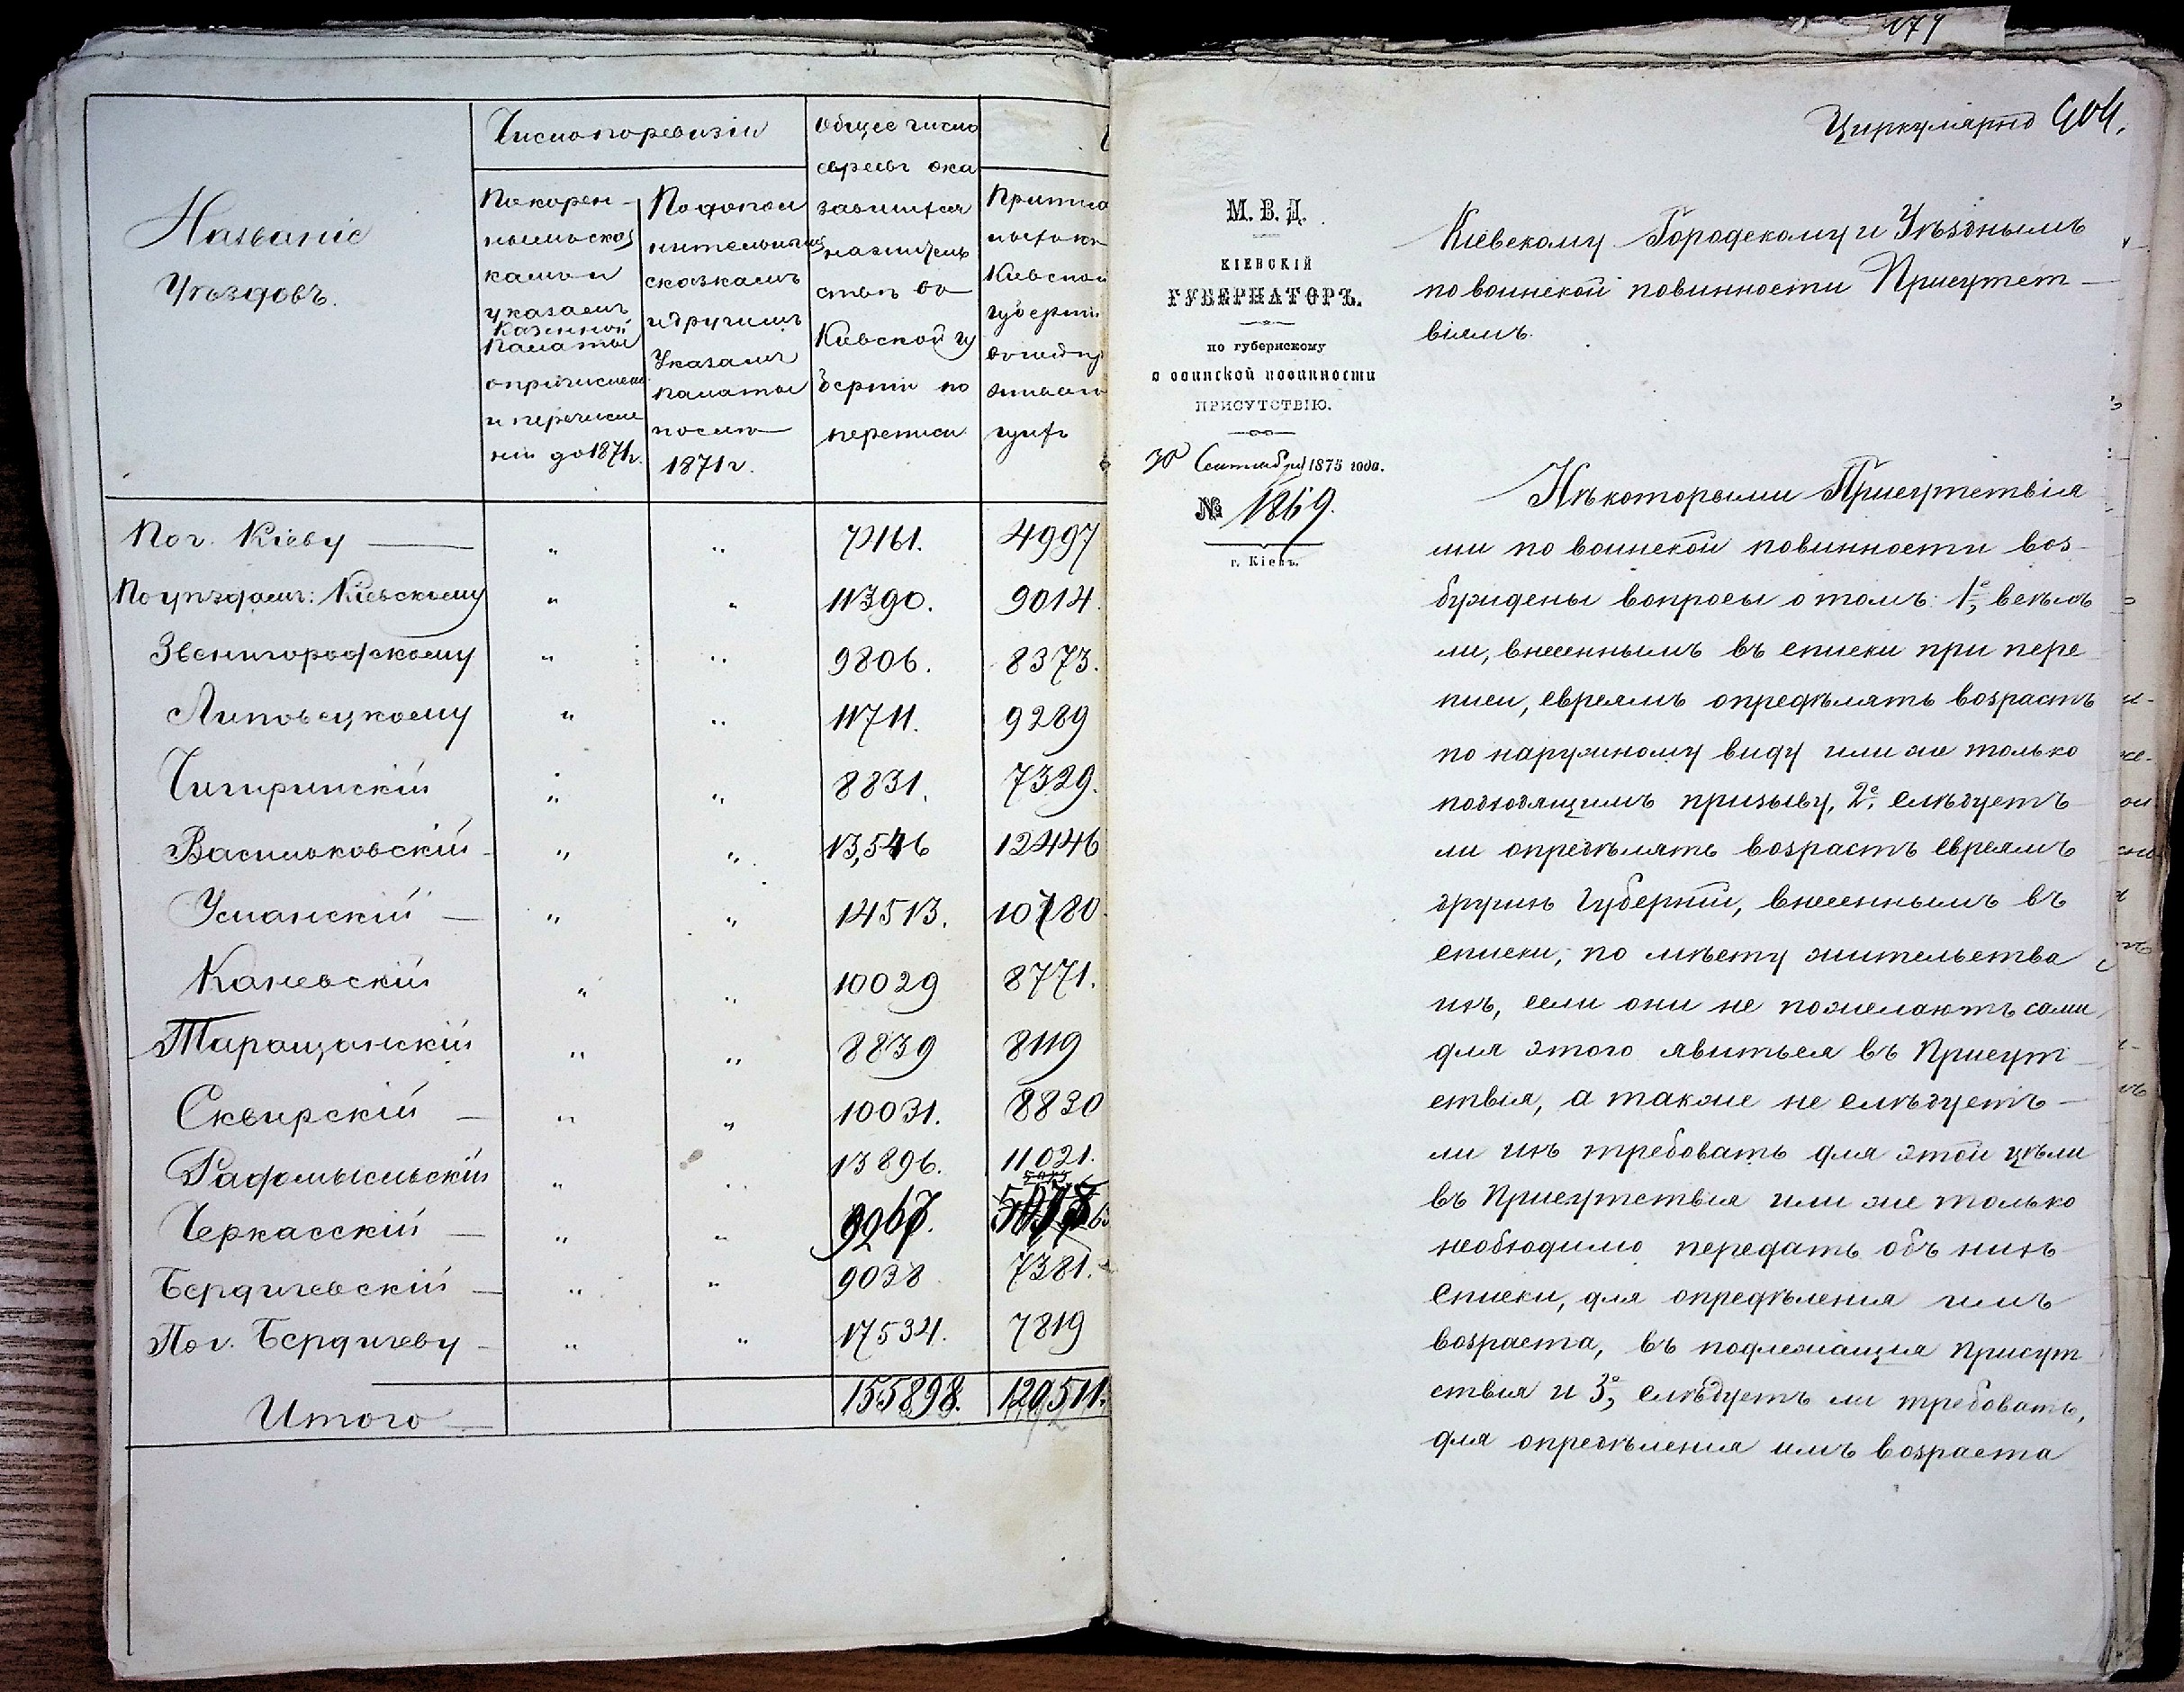 Названіе
Уѣздовъ.
Число по ревизіи
По корен-
нымъ сказ
камъ и
указамъ
Казенной
Палаты
о причислен
и перечисле
ніи до 1871 г.
По допол
нительнымъ
сказкамъ
и другимъ
Указамъ
Палаты
после
1871 г.
Общее число
евреевъ ока
завшихся
на житель
ствѣ во
Кіевской гу
берніи по
переписи
Припис
Кіевской
губерніи
По г. Кіеву — " " 72161. 4997
По уѣздамъ: Кіевскому " " 11390. 9014.
Звенигородскому " " 9806. 8373.
Липовецкому " " 11711. 9289
Чигиринскій " " 8831. 7329.
Васильковскій " " 13,546 12446
Уманскій — " " 14513. 10780.
Каневскій " " 10029 8771.
Таращанскій " " 8839 8119
Сквирскій — " " 10031. 8830
Радомысльскій " " 13896. 11021.
Черкасскій — " " 9267.
Бердичевскій — " " 9038 7381.
По г. Бердичеву — " " 17534. 7819
Итого — 155898. 120511.
174
Циркулярно 404.
М. В. Д.
КІЕВСКІЙ
ГУБЕРНАТОРЪ.
по губернскому
о воинской повинности
ПРИСУТСТВІЮ.
30 Сентября 1875 года.
№ 1869.
г. Кіевъ.
Кіевскому Городскому и Уѣзднымъ
по воинской повинности Присутст-
віямъ.
Нѣкоторыми Присутствія
ми по воинской повинности воз-
буждены вопросы о томъ: 1º, всѣмъ
ли, внесеннымъ въ списки при пере
писи, евреямъ опредѣлять возрастъ
по наружному виду или же только
подходящимъ призыву, 2º, слѣдуетъ
ли опредѣлять возрастъ евреямъ
другихъ Губерній, внесеннымъ въ
списки, по мѣсту жительства
ихъ, если они не пожелаютъ сами
для этого явиться въ Присут
ствія, а также не слѣдуетъ —
ли ихъ требовать для этой цѣли
въ Присутствія или же только
необходимо передать объ нихъ
списки, для опредѣленія имъ
возраста, въ подлежащія Присут
ствія и 3º, слѣдуетъ ли требовать,
для опредѣленія имъ возраста